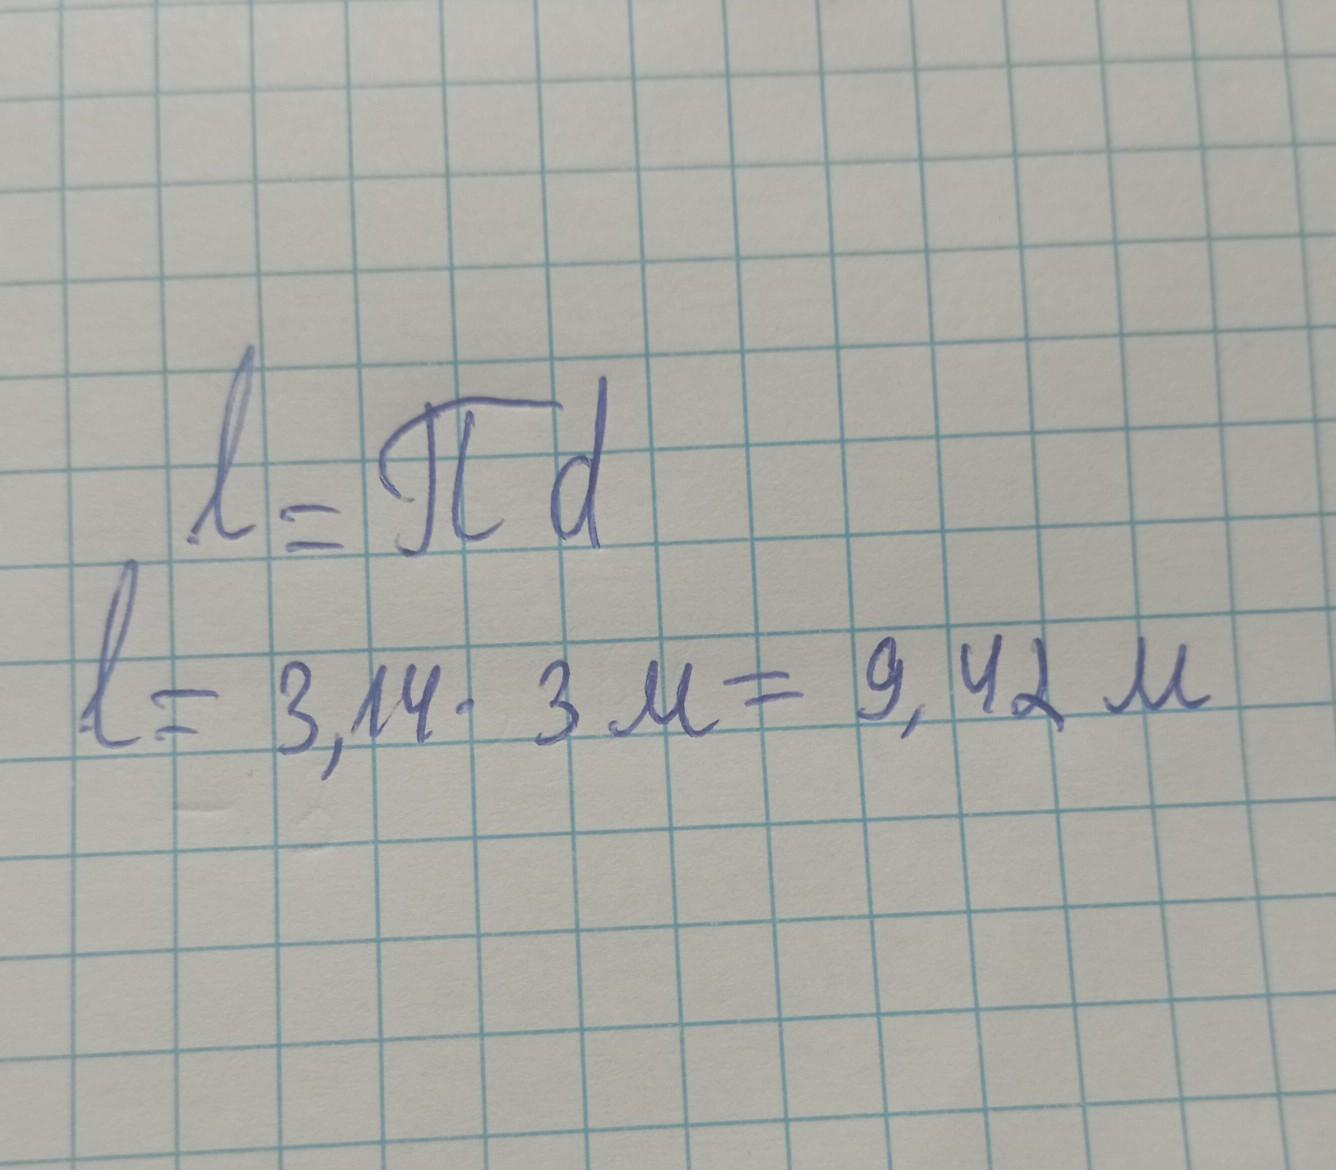 l = πd
l = 3,14 · 3 м = 9,42 м